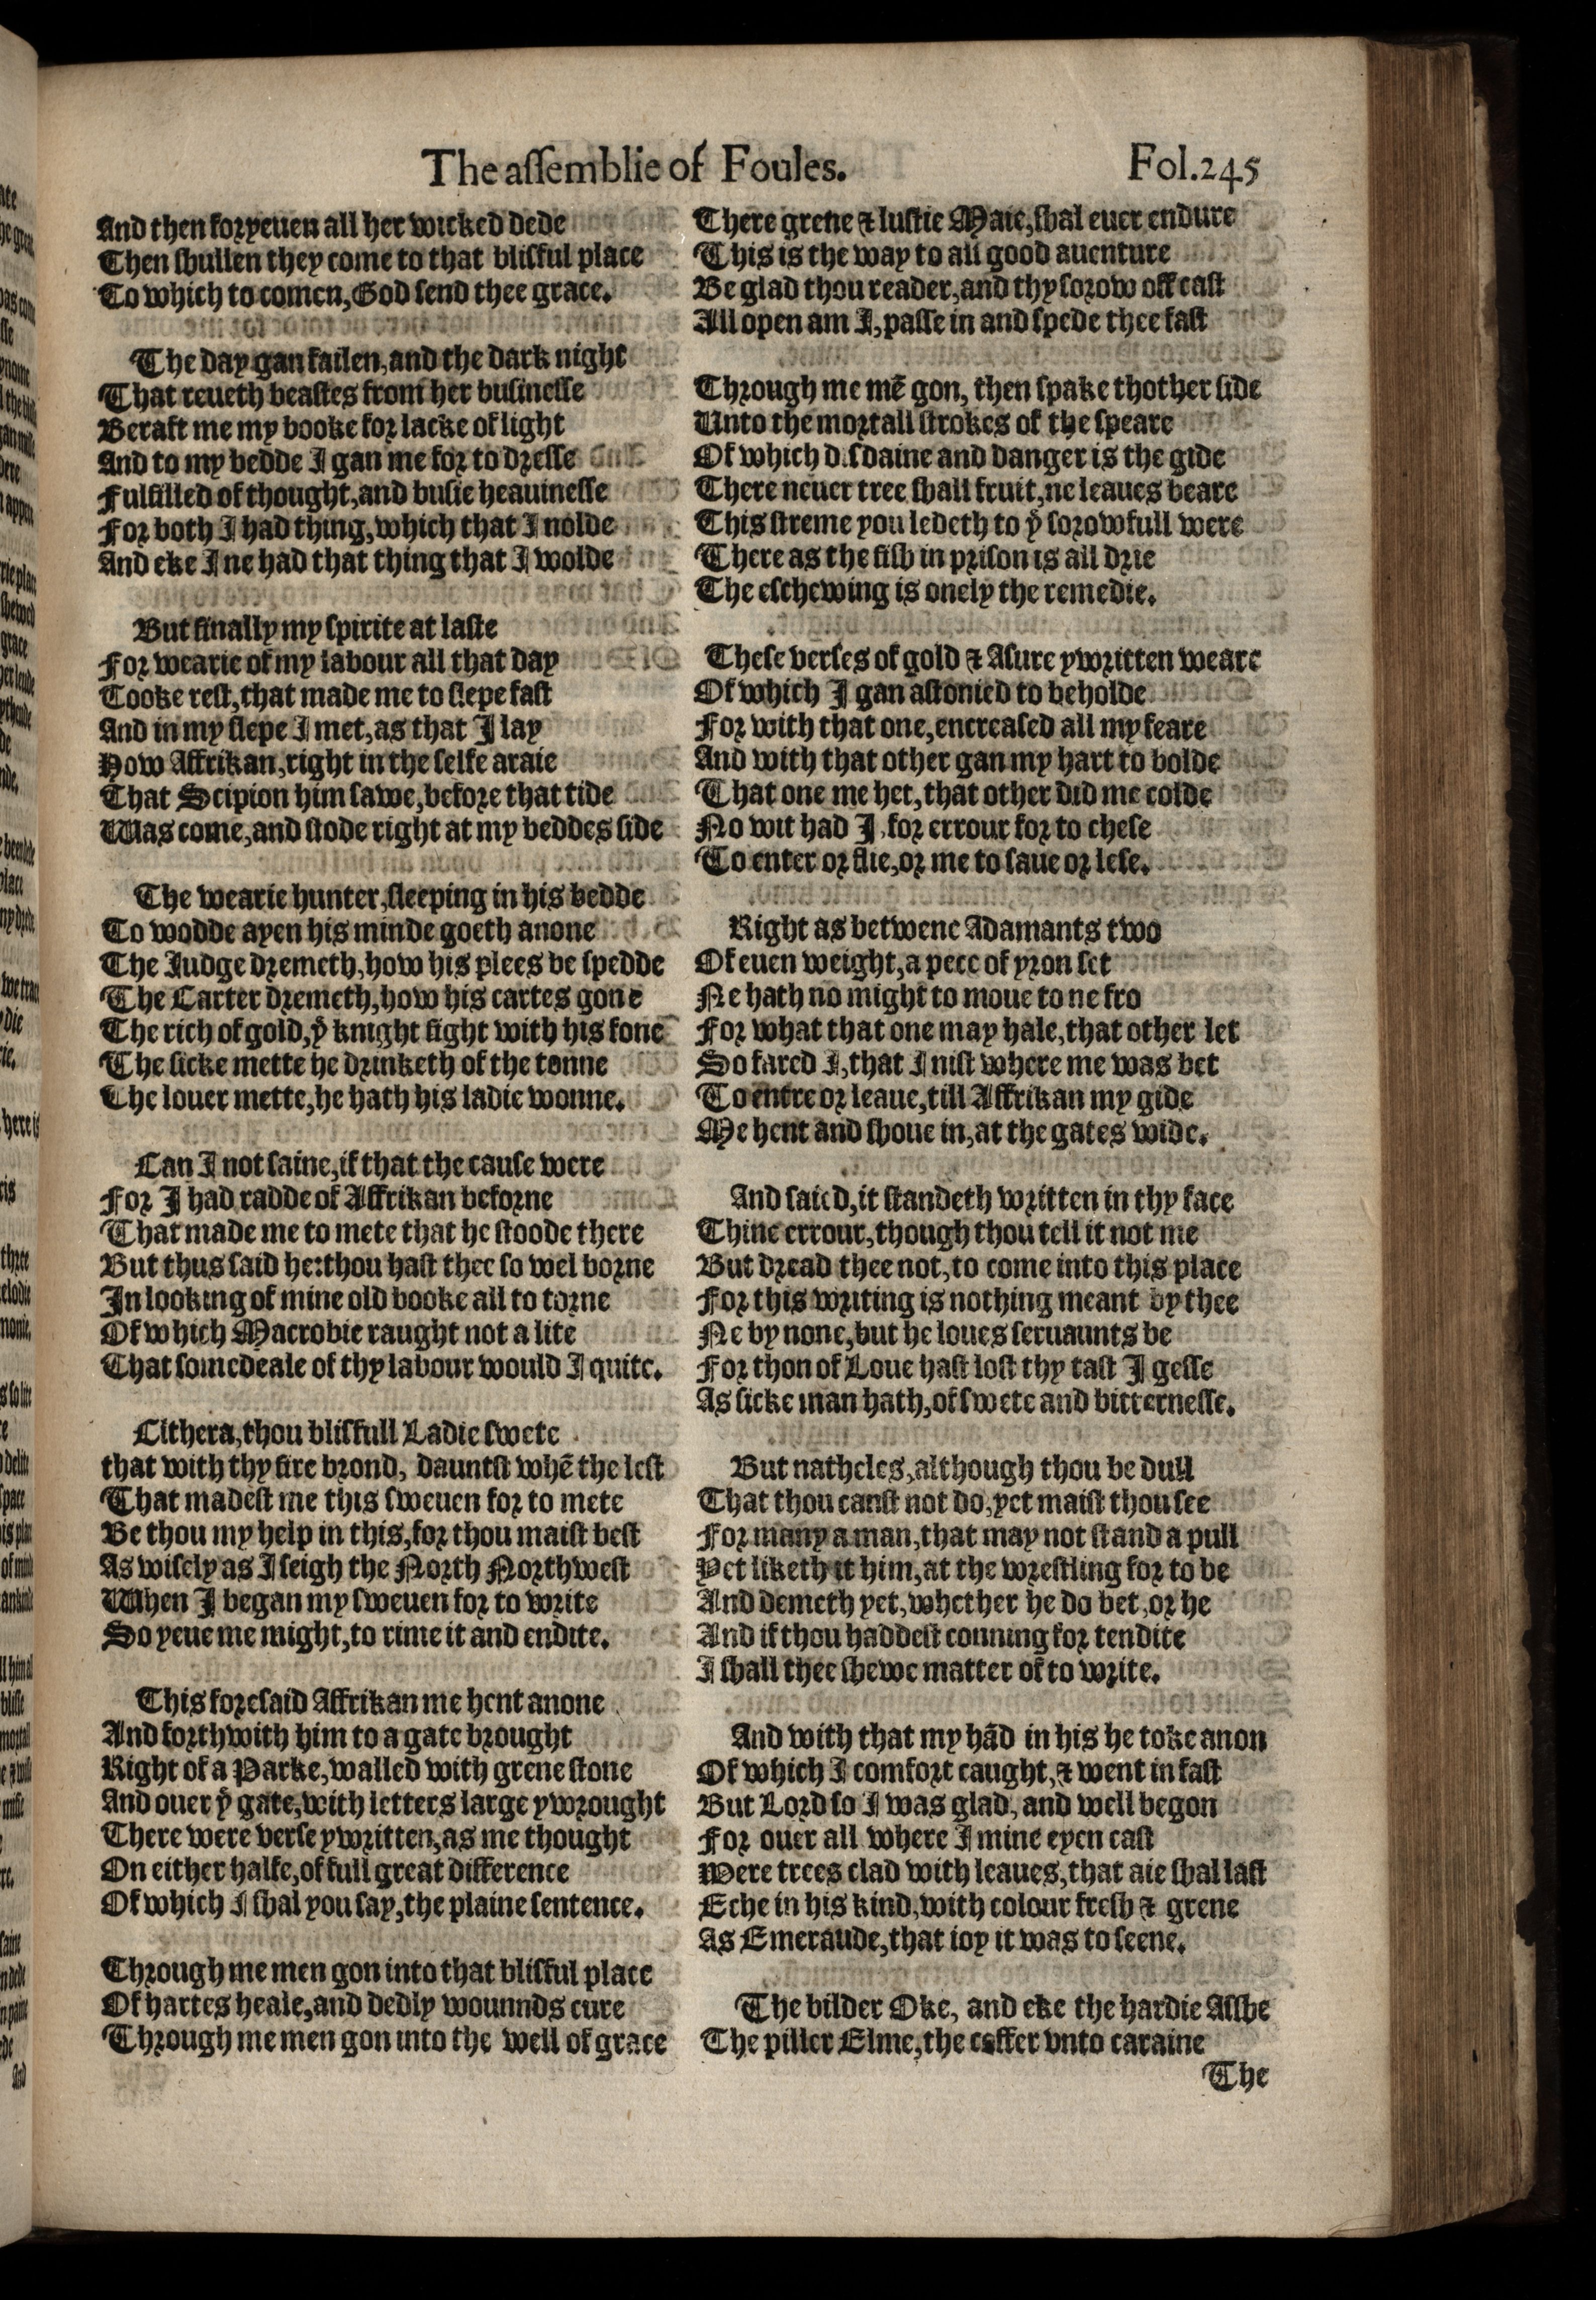 The assemblie of Foules.
Fol.245
And then foryeuen all her wicked dede
Then shullen they come to that blisful place
To which to comen, God send thee grace.
The day gan failen, and the dark night
That reueth beastes from her businesse
Beraft me my booke for lacke of light
And to my bedde I gan me for to dresse
Fulfilled of thought, and busie heauinesse
For both I had thing, which that I nolde
And eke I ne had that thing that I wolde
But finally my spirite at laste
For wearie of my labour all that day
Tooke rest, that made me to slepe fast
And in my slepe I met, as that I lay
How Affrikan, right in the selfe araie
That Scipion him sawe, before that tide
Was come, and stode right at my beddes side
The wearie hunter, sleeping in his bedde
To wodde ayen his minde goeth anone
The Iudge dremeth, how his plees be spedde
The Carter dremeth, how his cartes gone
The rich of gold, yͤ knight fight with his fone
The sicke mette he drinketh of the tonne
The louer mette, he hath his ladie wonne.
Can I not saine, if that the cause were
For I had radde of Affrikan beforne
That made me to mete that he stoode there
But thus said he: thou hast thee so wel borne
In looking of mine old booke all to torne
Of which Macrobie raught not a lite
That somedeale of thy labour would I quite.
Cithera, thou blisfull Ladie swete
that with thy fire brond, dauntst whē the lest
That madest me this sweuen for to mete
Be thou my help in this, for thou maist best
As wisely as I seigh the North Northwest
When I began my sweuen for to write
So yeue me might, to rime it and endite.
This foresaid Affrikan me hent anone
And forthwith him to a gate brought
Right of a Parke, walled with grene stone
And ouer yͤ gate, with letters large ywrought
There were verse ywritten, as me thought
On either halfe, of full great difference
Of which I shal you say, the plaine sentence.
Through me men gon into that blisful place
Of hartes heale, and dedly wounnds cure
Through me men gon into the well of grace
There grene & lustie Maie, shal euer endure
This is the way to all good auenture
Be glad thou reader, and thy sorow off cast
All open am I, passe in and spede thee fast
Through me mē gon, then spake thother side
Unto the mortall strokes of the speare
Of which d.sdaine and danger is the gide
There neuer tree shall fruit, ne leaues beare
This streme you ledeth to yͤ sorowfull were
There as the fish in prison is all drie
The eschewing is onely the remedie.
These verses of gold & Asure ywritten weare
Of which I gan astonied to beholde
For with that one, encreased all my feare
And with that other gan my hart to bolde
That one me het, that other did me colde
No wit had I, for errour for to chese
To enter or flie, or me to saue or lese.
Right as betwene Adamants two
Of euen weight, a pece of yron set
Ne hath no might to moue to ne fro
For what that one may hale, that other let
So fared I, that I nist where me was bet
To entre or leaue, till Affrikan my gide
Me hent and shoue in, at the gates wide.
And saied, it standeth written in thy face
Thine errour, though thou tell it not me
But dread thee not, to come into this place
For this writing is nothing meant by thee
Ne by none, but he loues seruaunts be
For thon of Loue hast lost thy tast I gesse
As sicke man hath, of swete and bitternesse.
But natheles, although thou be dull
That thou canst not do, yet maist thou see
For many a man, that may not stand a pull
Yet liketh it him, at the wrestling for to be
And demeth yet, whether he do bet, or he
And if thou haddest conning for tendite
I shall thee shewe matter of to write.
And with that my hād in his he toke anon
Of which I comfort caught, & went in fast
But Lord so I was glad, and well begon
For ouer all where I mine eyen cast
Were trees clad with leaues, that aie shal last
Eche in his kind, with colour fresh & grene
As Emeraude, that ioy it was to seene.
The bilder Oke, and eke the hardie Asshe
The piller Elme, the coffer vnto caraine
The